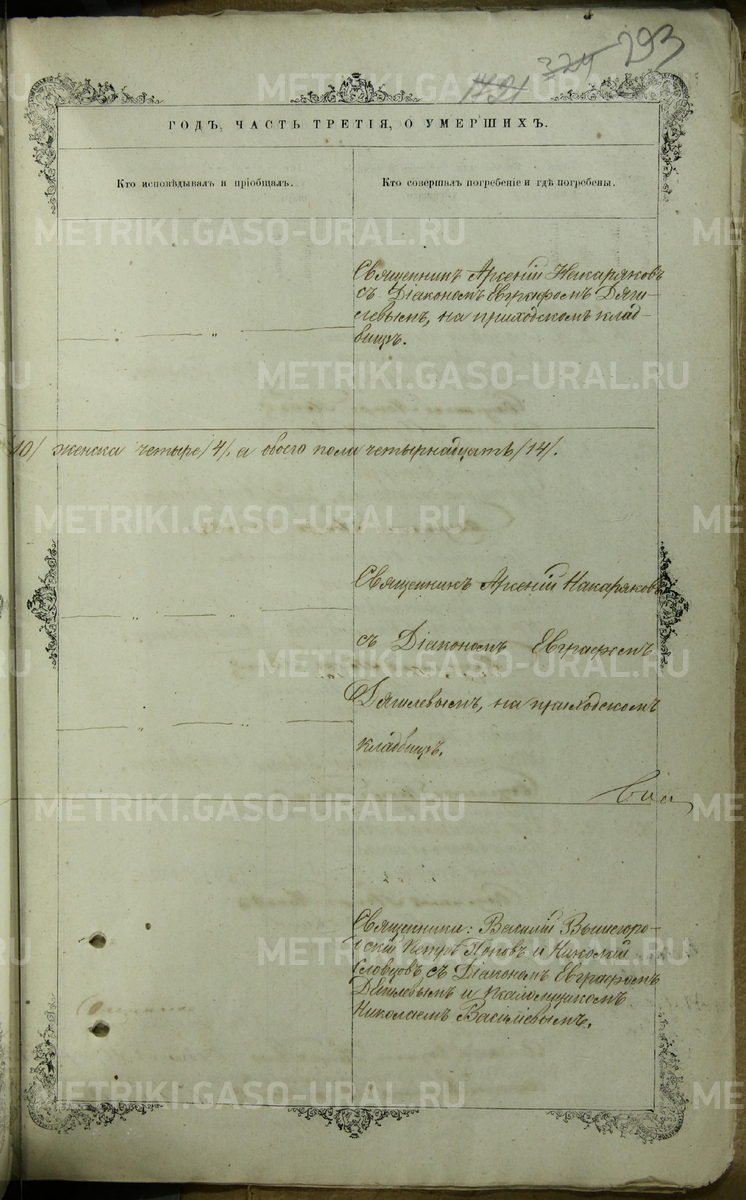 293
324
1421
ГОДЪ, ЧАСТЬ ТРЕТІЯ, О УМЕРШИХЪ.
Кто исповѣдывалъ и пріобщалъ.
Кто совершалъ погребеніе и гдѣ погребены.
Священникъ Арсеній Накаряковъ
съ Діакономъ Евграфомъ Дяги-
левымъ, на приходскомъ клад-
бищѣ.
10/ женска четыре /4/, а обоего пола четырнадцать /14/.
Священникъ Арсеній Накаряковъ
съ Діакономъ Евграфомъ
Дягилевымъ, на приходскомъ
кладбищѣ.
Священники: Василій Вышегоро-
скій Петръ Поповъ и Николай
Словцовъ, съ Діакономъ Евграфомъ
Дягилевымъ и
Николаемъ Васильевымъ.
METRIKI.GASO-URAL.RU